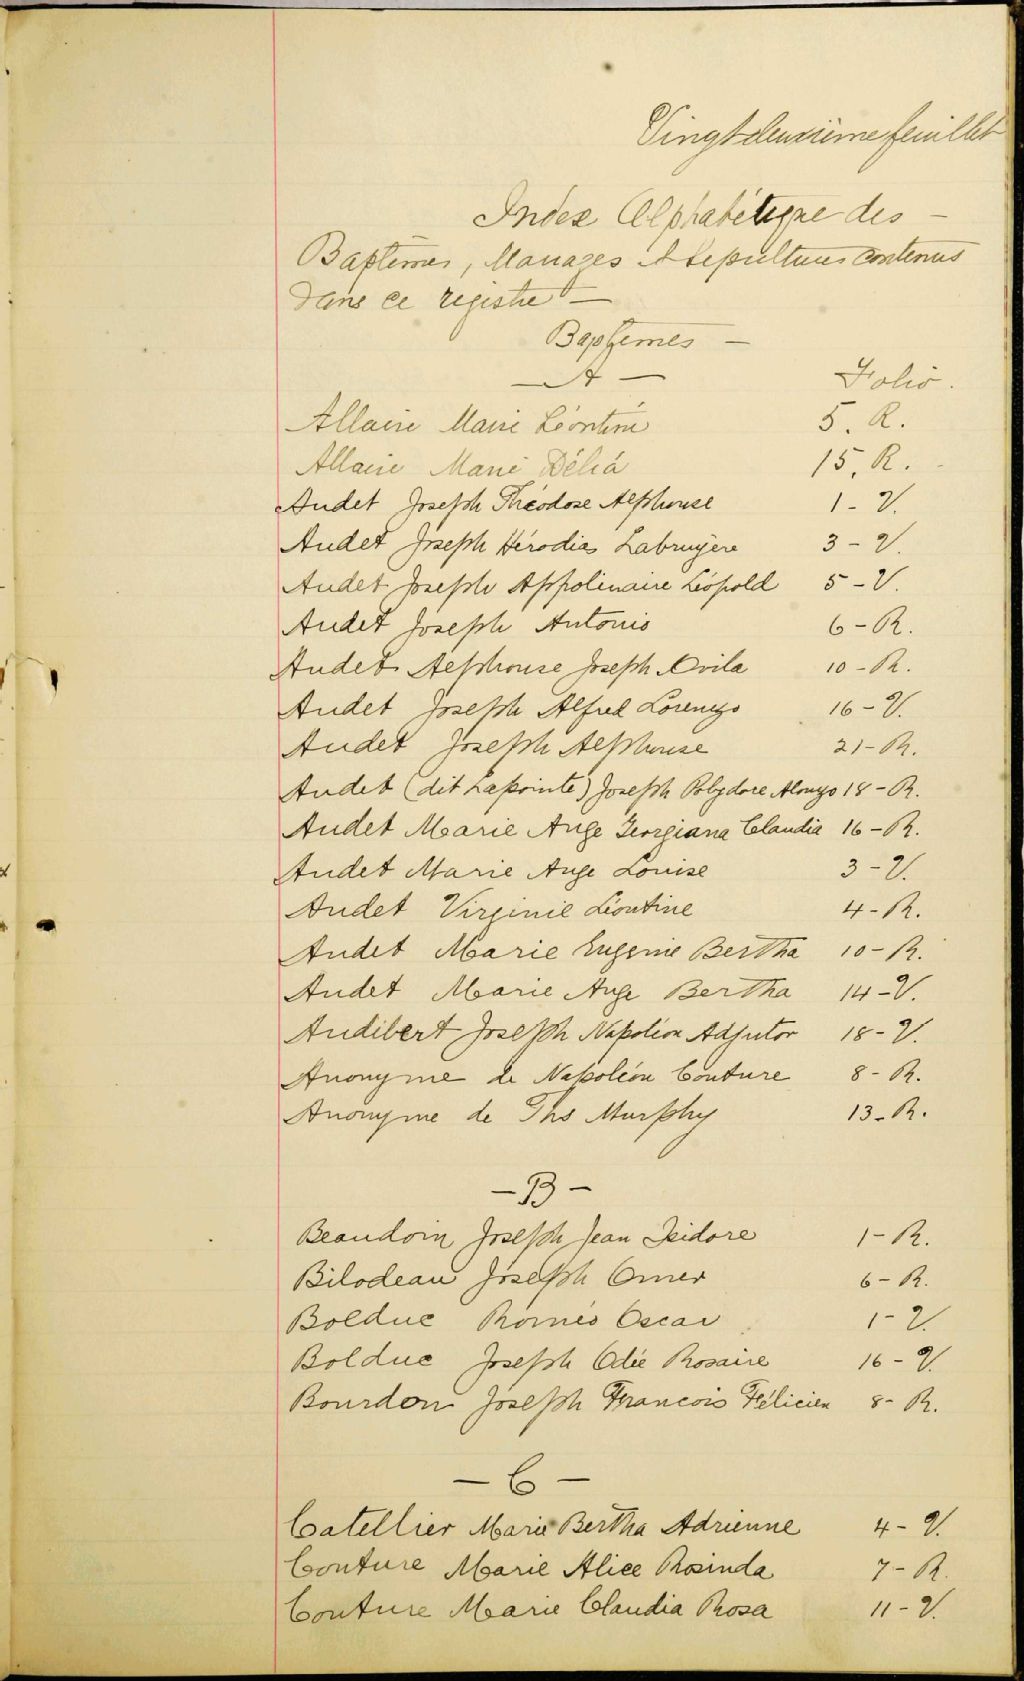 Vingt deuxième feuillet
Index Alphabétique des —
Baptêmes, Mariages et Sépultures contenus
dans ce registre —
Baptêmes —
— A —
Folio.
Allaire Marie Léontine 5. R.
Allaire Marie Délia 15. R.
Audet Joseph Théodose Alphonse 1 - V.
Audet Joseph Hérodias Labruyère 3 - V.
Audet Joseph Appolinaire Léopold 5 - V.
Audet Joseph Antonio 6 - R.
Audet Alphonse Joseph Ovila 10 - R.
Audet Joseph Alfred Lorenzo 16 - V.
Audet Joseph Alphonse 21 - R.
Audet (dit Lapointe) Joseph Polydore Alonzo 18 - R.
Audet Marie Ange Georgiana Claudia 16 - R.
Audet Marie Ange Louise 3 - V.
Audet Virginie Léontine 4 - R.
Audet Marie Eugenie Bertha 10 - R.
Audet Marie Ange Bertha 14 - V.
Audibert Joseph Napoléon Adjutor 18 - V.
Anonyme de Napoléon Couture 8 - R.
Anonyme de Ths Murphy 13 - R.
— B —
Beaudoin Joseph Jean Isidore 1 - R.
Bilodeau Joseph Omer 6 - R.
Bolduc Roméo Oscar 1 - V.
Bolduc Joseph Odie Rosaire 16 - V.
Bourdon Joseph Francois Félicien 8 - R.
— C —
Catellier Marie Bertha Adrienne 4 - V.
Couture Marie Alice Rosinda 7 - R.
Couture Marie Claudia Rosa 11 - V.